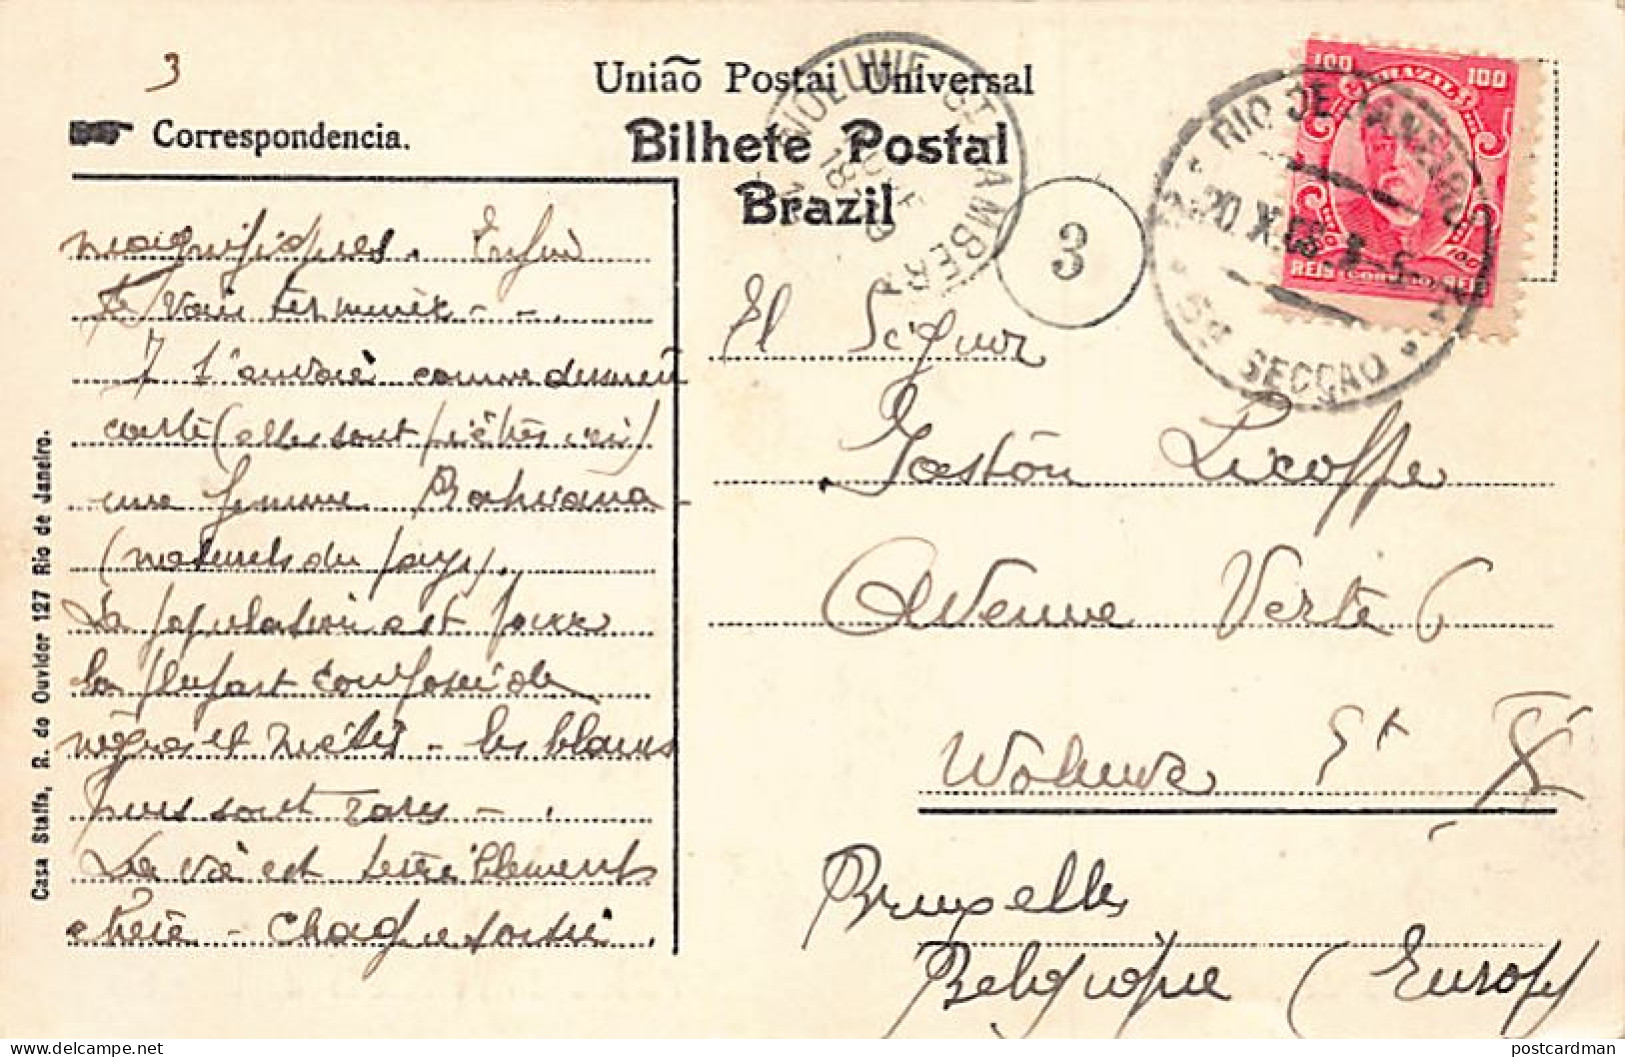 3
União Postal Universal
Correspondencia.
Bilhete Postal
Brazil
magnifiques. Enfin
Je vais terminer - - .
J t'envoie comme dernière
carte (elles sont prêtes ici)
une femme Bahiana -
(naturels du pays).
La population est pour
la plupart composée de
nègres et métis - les blancs
purs sont rares - .
La vie est terriblement
chère - Chaque sortie .
Casa Staffa, R. do Ouvidor 127 Rio de Janeiro.
WOLUWE-ST-LAMBERT
18
3
100 BRAZIL 100
REIS (CORREIO) REIS
RIO DE JANEIRO
20 X 08
5ª SECÇÃO
El Señor
Gaston Licoppe
Avenue Verte 6
Woluwe St
Bruxelles
Belgique (Europe)
postcardman